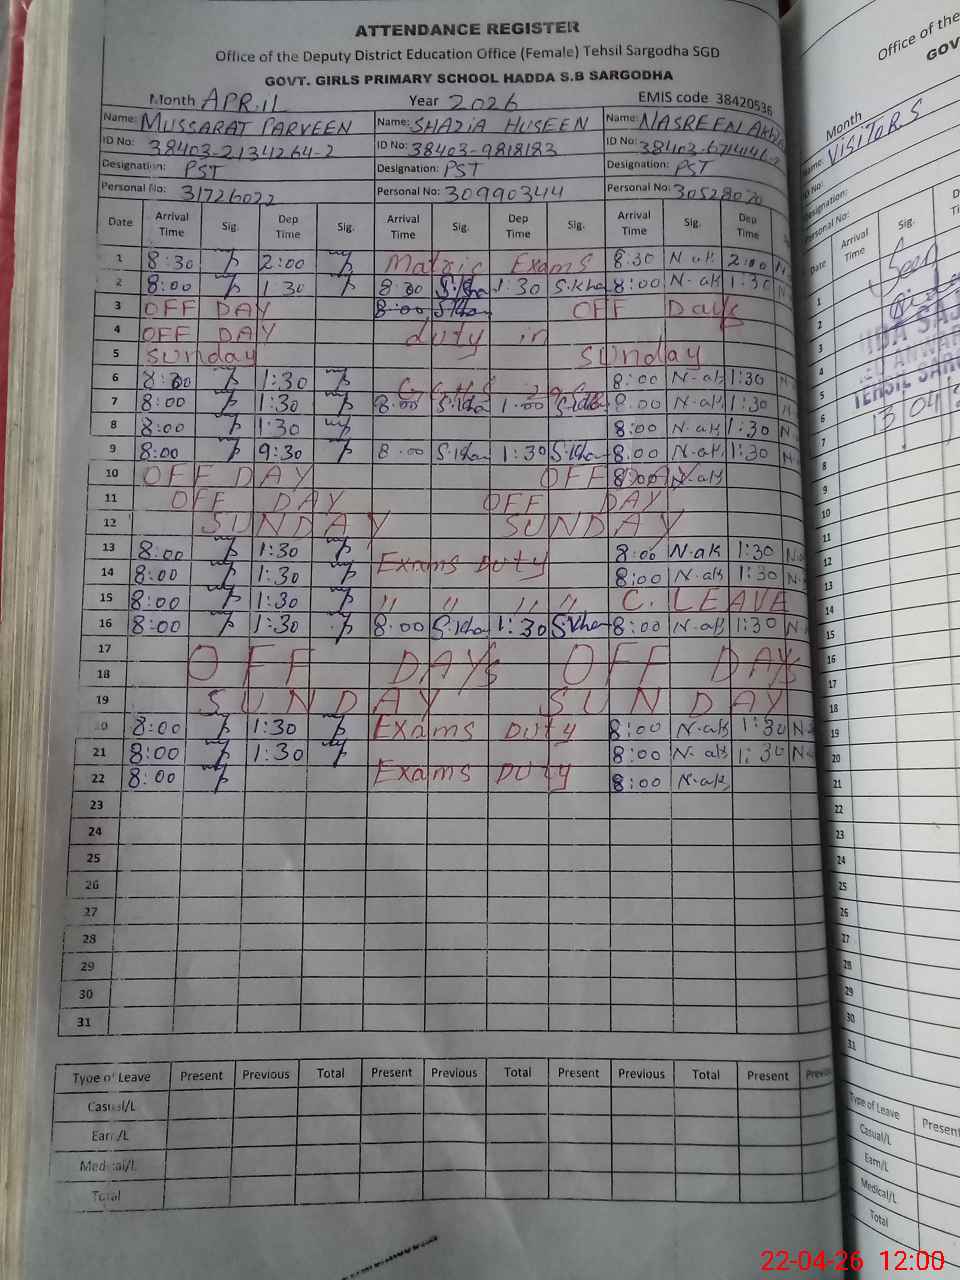 ATTENDANCE REGISTER
Office of the Deputy District Education Office (Female) Tehsil Sargodha SGD
GOVT. GIRLS PRIMARY SCHOOL HADDA S.B SARGODHA
Month APRIL Year 2026 EMIS code 38420536
Name: MUSSARAT PARVEEN Name: SHAZIA HUSEEN Name: NASREEN
ID No: 38403-2134264-2 ID No: 38403-9818183 ID No:
Designation: PST Designation: PST Designation: PST
Personal No: 31726022 Personal No: 30990344 Personal No: 30528070
Date Arrival Time Sig. Dep Time Sig. Arrival Time Sig. Dep Time Sig. Arrival Time Sig. Dep Time
1 8:30 2:00 Matric Exams 8:30 N.ak 2:00
2 8:00 1:30 8:00 S.Kha 1:30 S.Kha 8:00 N-ak 1:30
3 OFF DAY 8:00 S.Kha OFF Days
4 OFF DAY duty in
5 Sunday Sunday
6 8:00 1:30 8:00 N-ak 1:30
7 8:00 1:30 8:00 S.Kha 1:00 8:00 N-ak 1:30
8 8:00 1:30 8:00 N-ak 1:30
9 8:00 9:30 8:00 S.Kha 1:30 S.Kha 8:00 N-ak 1:30
10 OFF DAY OFF DAY 8:00 N-ak
11 OFF DAY OFF DAY
12 SUNDAY SUNDAY
13 8:00 1:30 Exams Duty 8:00 N.ak 1:30
14 8:00 1:30 8:00 N-ak 1:30
15 8:00 1:30 " " " " C. LEAVE
16 8:00 1:30 8:00 S.Kha 1:30 S.Kha 8:00 N-ak 1:30
17
18 OFF DAYS OFF DAYS
19 SUNDAY SUNDAY
20 8:00 1:30 Exams Duty 8:00 N-ak 1:30
21 8:00 1:30 8:00 N-ak 1:30
22 8:00 Exams Duty 8:00 N-ak
23
24
25
26
27
28
29
30
31
Type of Leave Present Previous Total Present Previous Total Present Previous Total Present
Casual/L
Earn/L
Medical/L
Total
Office of the
Month
Name: VISITORS
ID No:
Designation:
Personal No:
Date Arrival Time Sig.
1
2
3
4
5
6
7
8
9
10
11
12
13
14
15
16
17
18
19
20
21
22
23
24
25
26
27
28
29
30
31
Type of Leave Present
Casual/L
Earn/L
Medical/L
Total
22-04-26 12:00